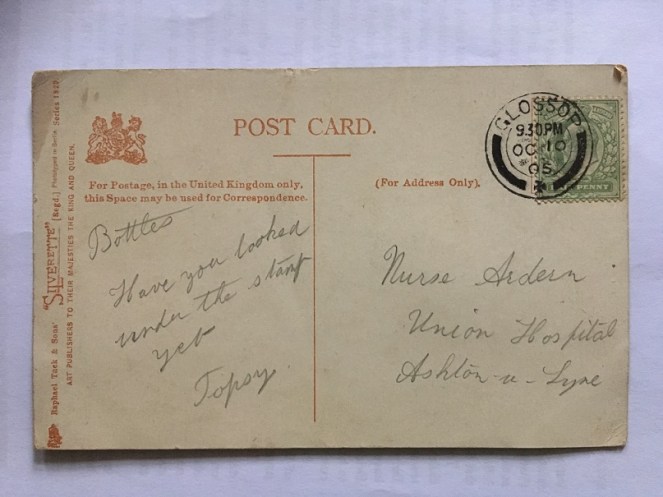 POST CARD.
For Postage, in the United Kingdom only,
this Space may be used for Correspondence.
(For Address Only).
Bottles
Have you looked
under the stamp
yet
Topsy.
Nurse Ardern
Union Hospital
Ashton-u-Lyne
GLOSSOP
9.30PM
OC 10
05
HALFPENNY
Raphael Tuck & Sons' "SILVERETTE" [Regd.] Photogravd in Berlin Series 1527
ART PUBLISHERS TO THEIR MAJESTIES THE KING AND QUEEN.